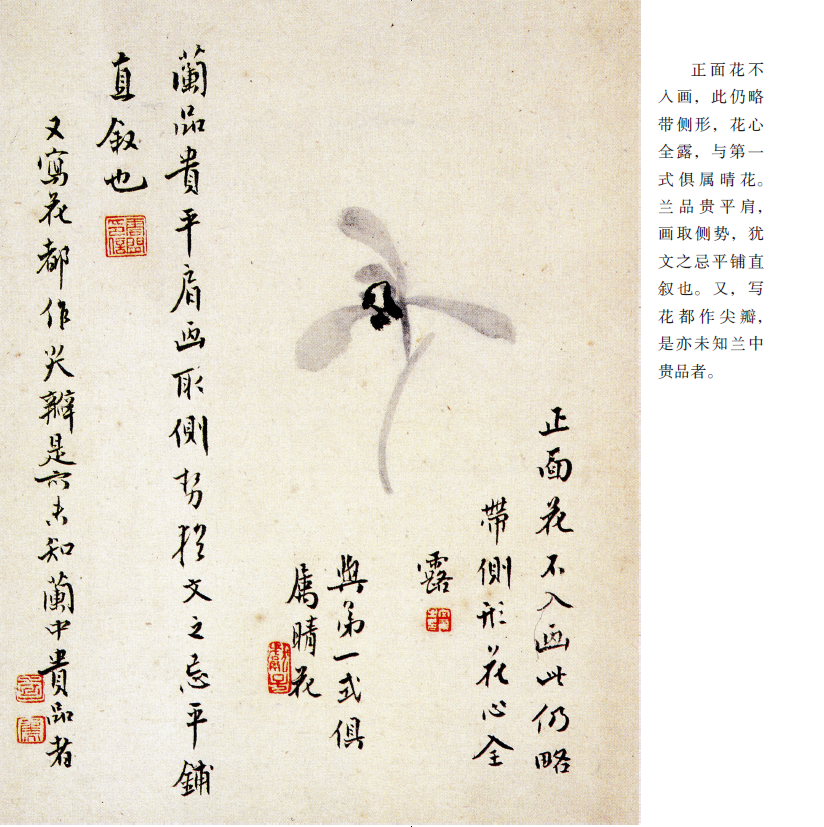 正面花不入画此仍略
带側形花心全
露
與第一式俱
属晴花
蘭品貴平肩画取側势猶文之忌平鋪
直叙也
又寫花都作尖瓣是亦未知蘭中貴品者
正面花不
入画，此仍略
带侧形，花心
全露，与第一
式俱属晴花。
兰品贵平肩，
画取侧势，犹
文之忌平铺直
叙也。又，写
花都作尖瓣，
是亦未知兰中
贵品者。